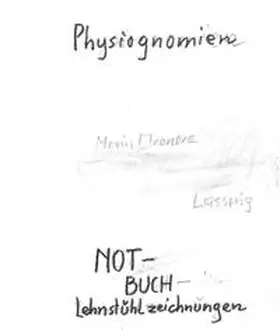 Physiognomien
Maria
Lassnig
NOT-
BUCH-
Lehnstühlzeichnungen